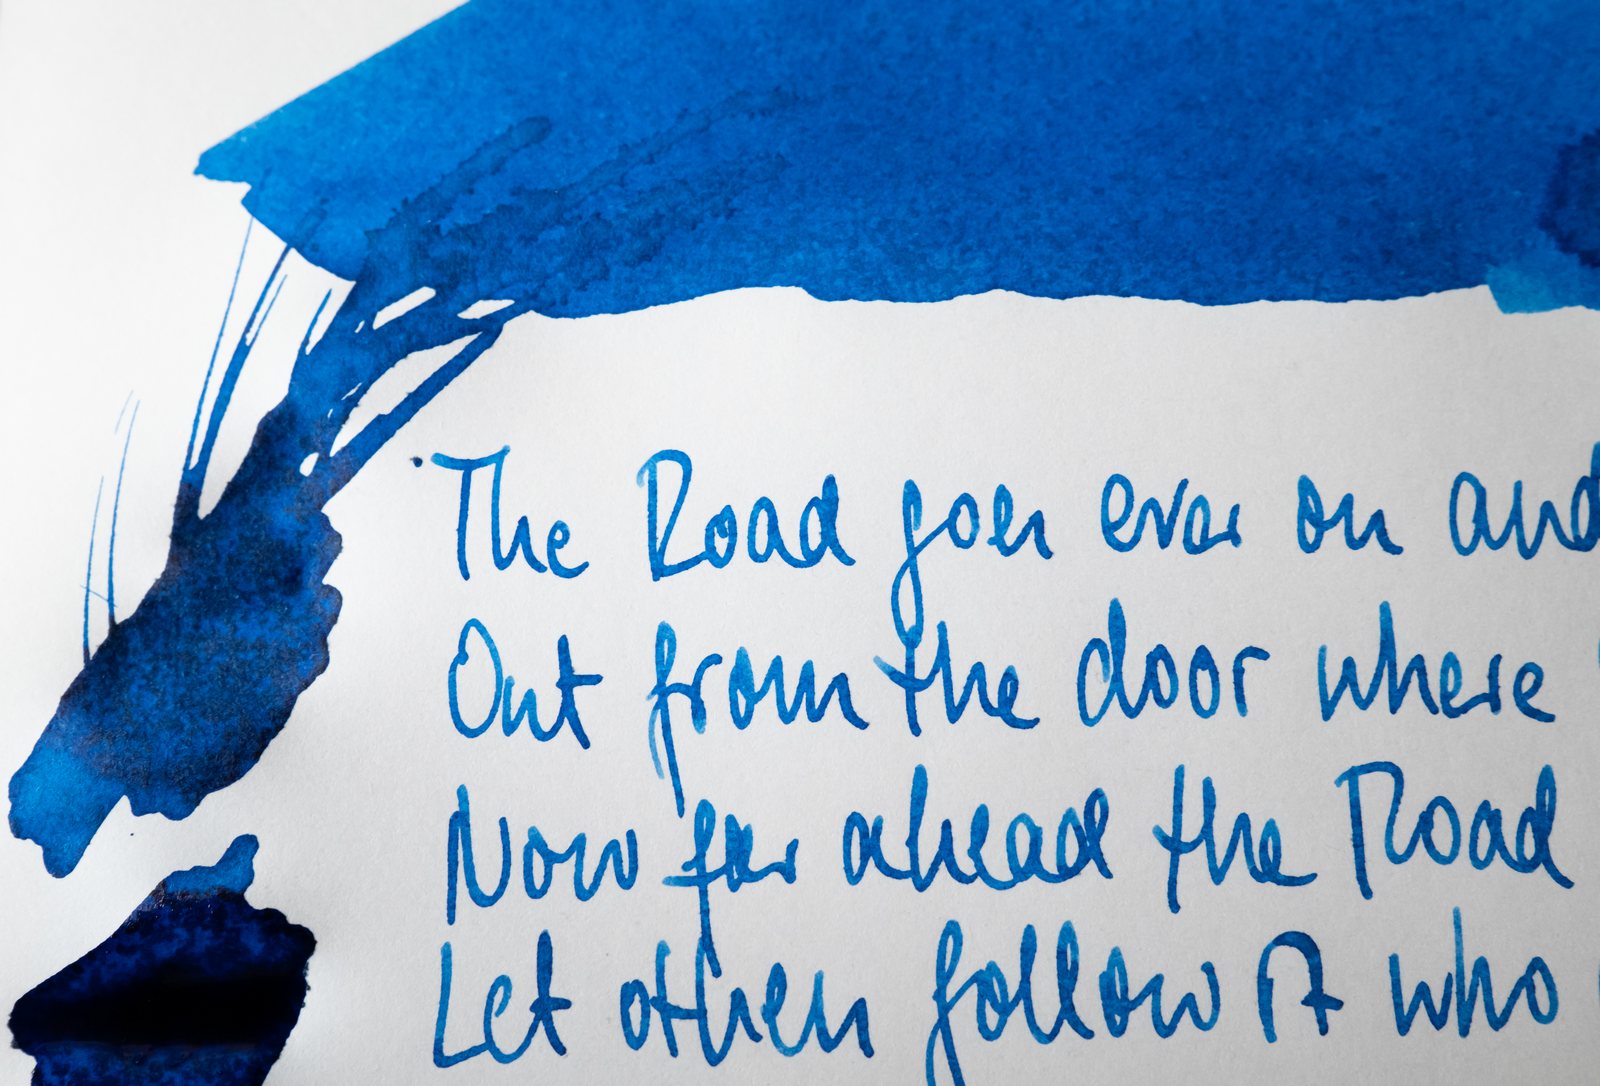 The Road goes ever on and
Out from the door where
Now far ahead the Road
Let others follow it who